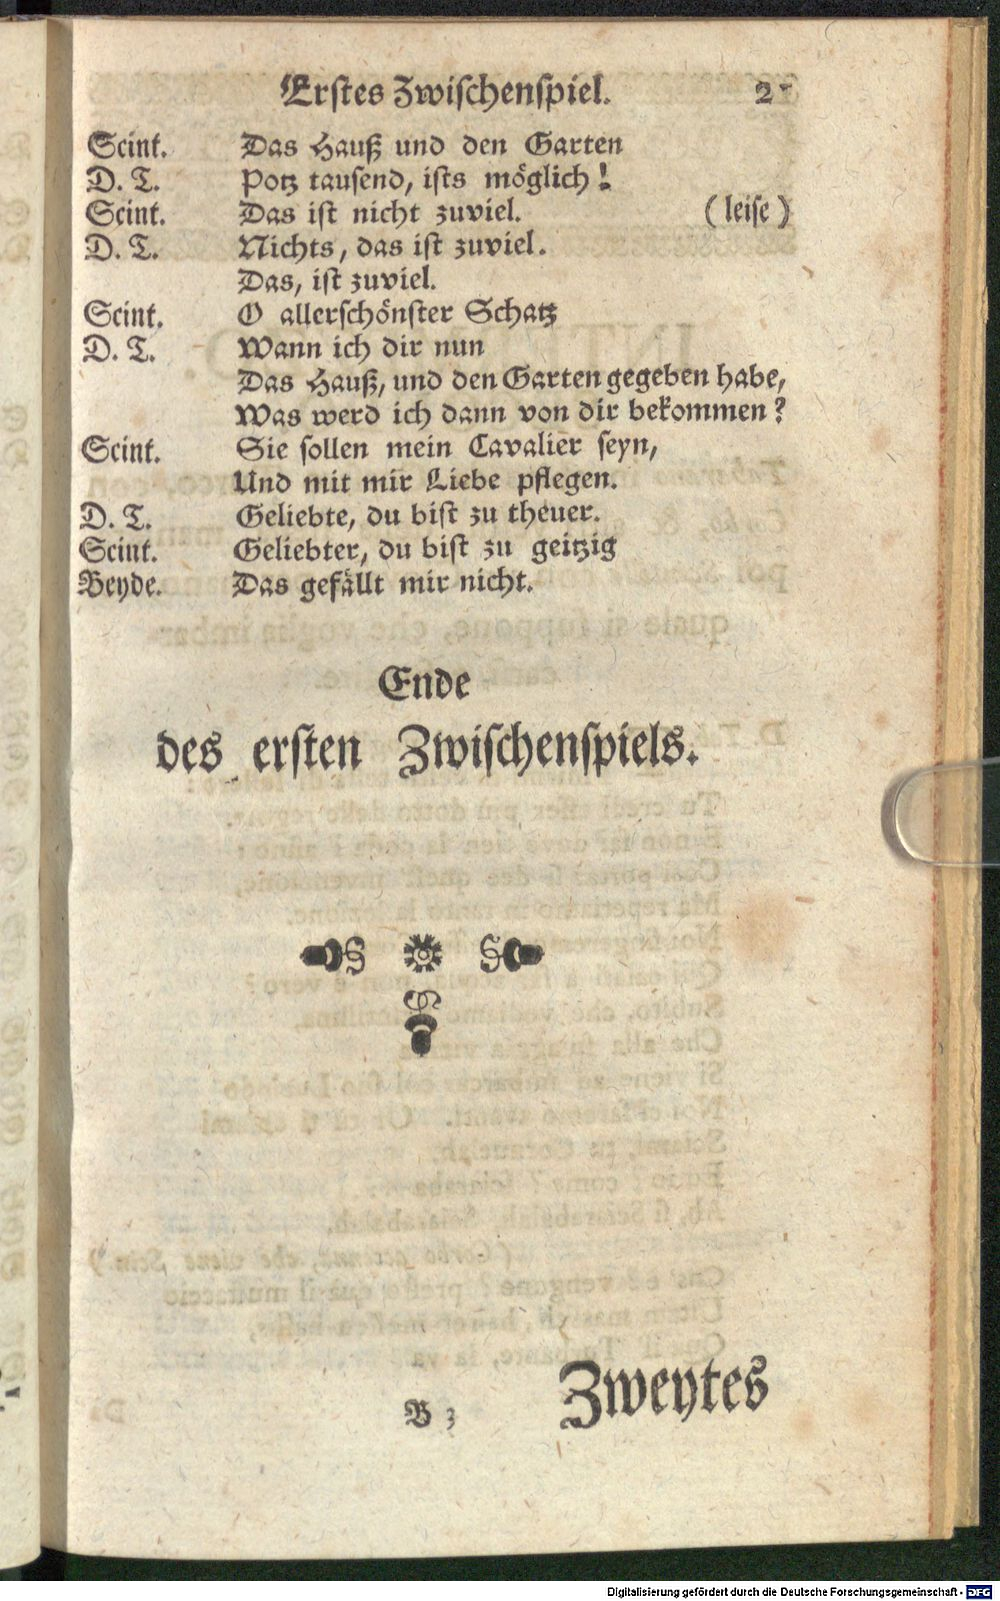 Erstes Zwischenspiel. 2
Scint. Das Hauß und den Garten
D. T. Potz tausend, ists möglich!
Scint. Das ist nicht zuviel. (leise)
D. T. Nichts, das ist zuviel.
Das, ist zuviel.
Scint. O allerschönster Schatz
D. T. Wann ich dir nun
Das Hauß, und den Garten gegeben habe,
Was werd ich dann von dir bekommen?
Scint. Sie sollen mein Cavalier seyn,
Und mit mir Liebe pflegen.
D. T. Geliebte, du bist zu theuer.
Scint. Geliebter, du bist zu geitzig
Beyde. Das gefällt mir nicht.
Ende
des ersten Zwischenspiels.
B 3 Zweytes
Digitalisierung gefördert durch die Deutsche Forschungsgemeinschaft - DFG